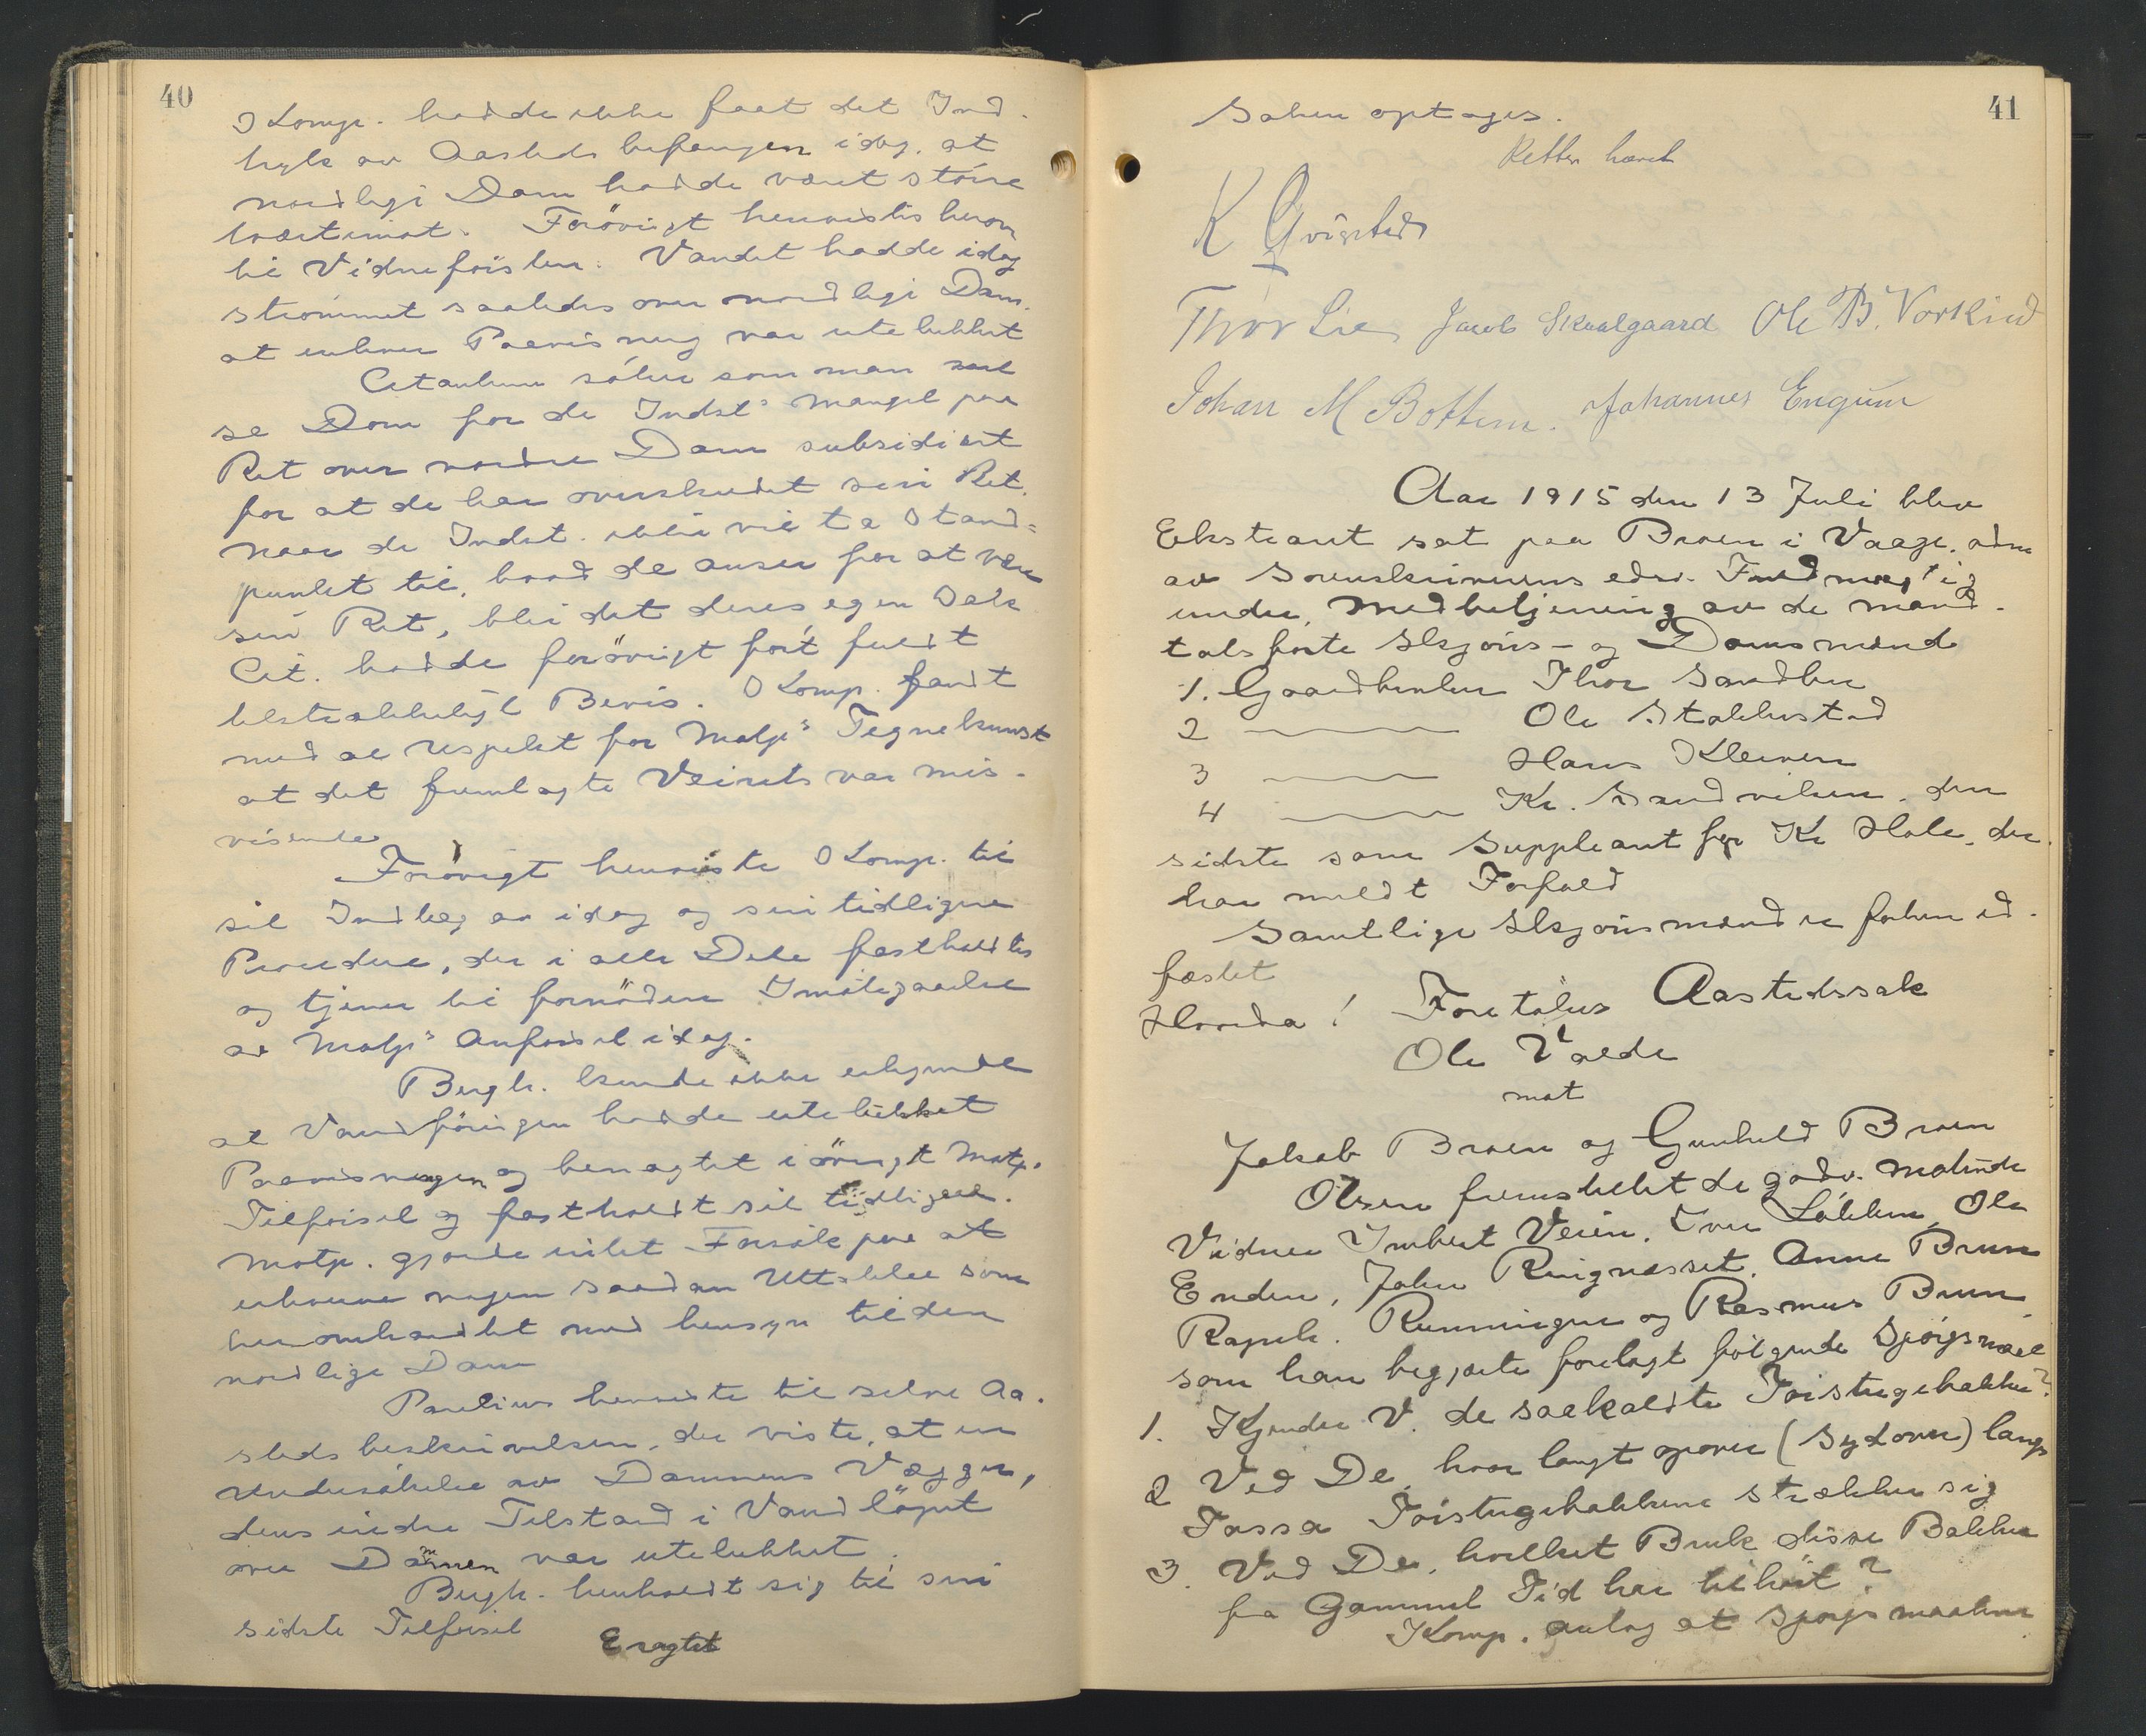 40
Komp. hadde ikke faat det Ind-
tryk av Aastedsbefaringen idag, at
nordlige Dam hadde været større
tværtimot. Forøvrigt henvistes herom
til Vidneførslen. Vandet hadde idag
strømmet saaledes over nordlige Dam,
at enhver Paavisning var utelukket
Citanterne søker som man vil
se Dom for de Indst^s mangel paa
Ret over nordre Dam subsidiært
for at de har overskredet sin Ret.
Naar de Indst. ikke vil ta Stand-
punkt til, hvad de anser for at være
sin Ret, blir det deres egen Sak
Cit. hadde forøvrigt ført fuldt
tilstrækkeligt Bevis. Komp. fandt
med al respekt for Motp^s Tegnekunst
at det fremlagte var mis-
visende
Forøvrigt henviste Komp. til
sit Indlæg av idag og sin tidligere
Procedure, der i alle Dele fastholdtes
og tjener til fornøden Imøtegaaelse
av Motp^s Anførsel idag.
Bergh. kunde ikke erkjende
at Vandføringen hadde utelukket
Paavisningen og benægtet iøvrigt Motp.
Tilførsel og fastholdt sit tidligere.
Motp. gjorde intet Forsøk paa at
erhverve nogen saadan Uttalelse som
her omhandlet med hensyn til den
nordlige Dam
Paulius henviste til selve Aa-
stedsbeskrivelsen, der viste, at en
Undersøkelse av Dammens Vægger,
dens indre Tilstand i Vandløpet
over Dammen var utelukket.
Bergh. henholdt sig til sin
sidste Tilførsel
Eragtet
41
Saken optages.
Retten hævet
K Qvigstad
Thor Lie Jacob Skaalgaard Ole B. Vorkind
Johan M Bottem. Johannes Engum
Aar 1915 den 13 Juli blev
Ekstraret sat paa Braen i Vaage, adm
av Sorenskriverens edsv. Fuldmægtig
under Medbetjening av de mand-
talsførte Skjøns- og Domsmænd
1. Gaardbruker Thor Sandbu
2 ——— Ole Stakkestad
3 ——— Hans Kleiven
4 ——— Kr. Sandviken, den
sidste som Suppleant for Kr Hole, der
har meldt Forfald
Samtlige Skjønsmænd er forhen ed-
fæstet
Hvorda! Foretokes Aastedssak
Ole Valde
mot
Jakob Braen og Gunhild Braen
Olsen fremstillet de godv. møtende
Vidner Imbert Veien, Iver Løkken, Ole
Enden, John Ringnesset, Anne Brun
Rønningen og Rasmus Brun
som han begjærte forelagt følgende Spørgsmaal
1. Kjender V. de saakaldte Toistugebakker?
2 Ved De, hvor langt opover (Sydover) langs
Jossa Toistugebakkene strækker sig
3. Ved De, hvilket Bruk disse Bakker
fra Gammel Tid har tilhørt?
Komp. antog at Spørgsmaalene